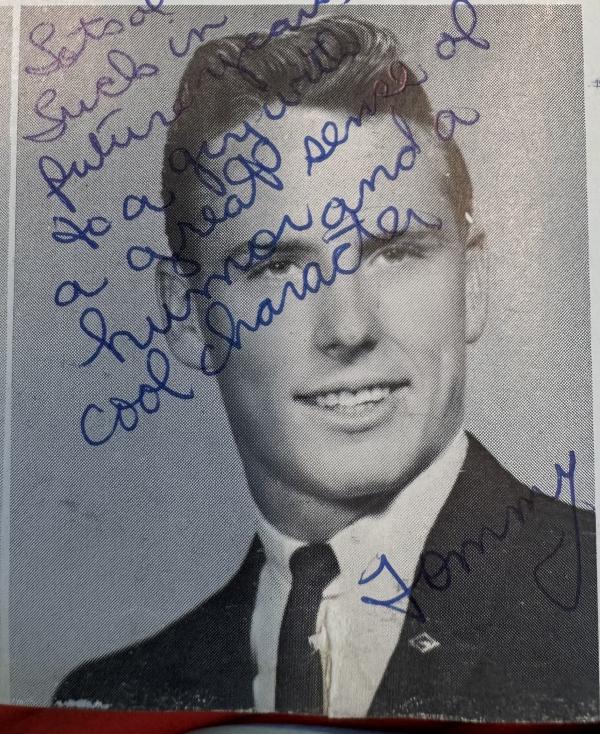 Lots of
Sucls in
future years
to a guy with
a great sense of
humor and a
cool character
Tommy